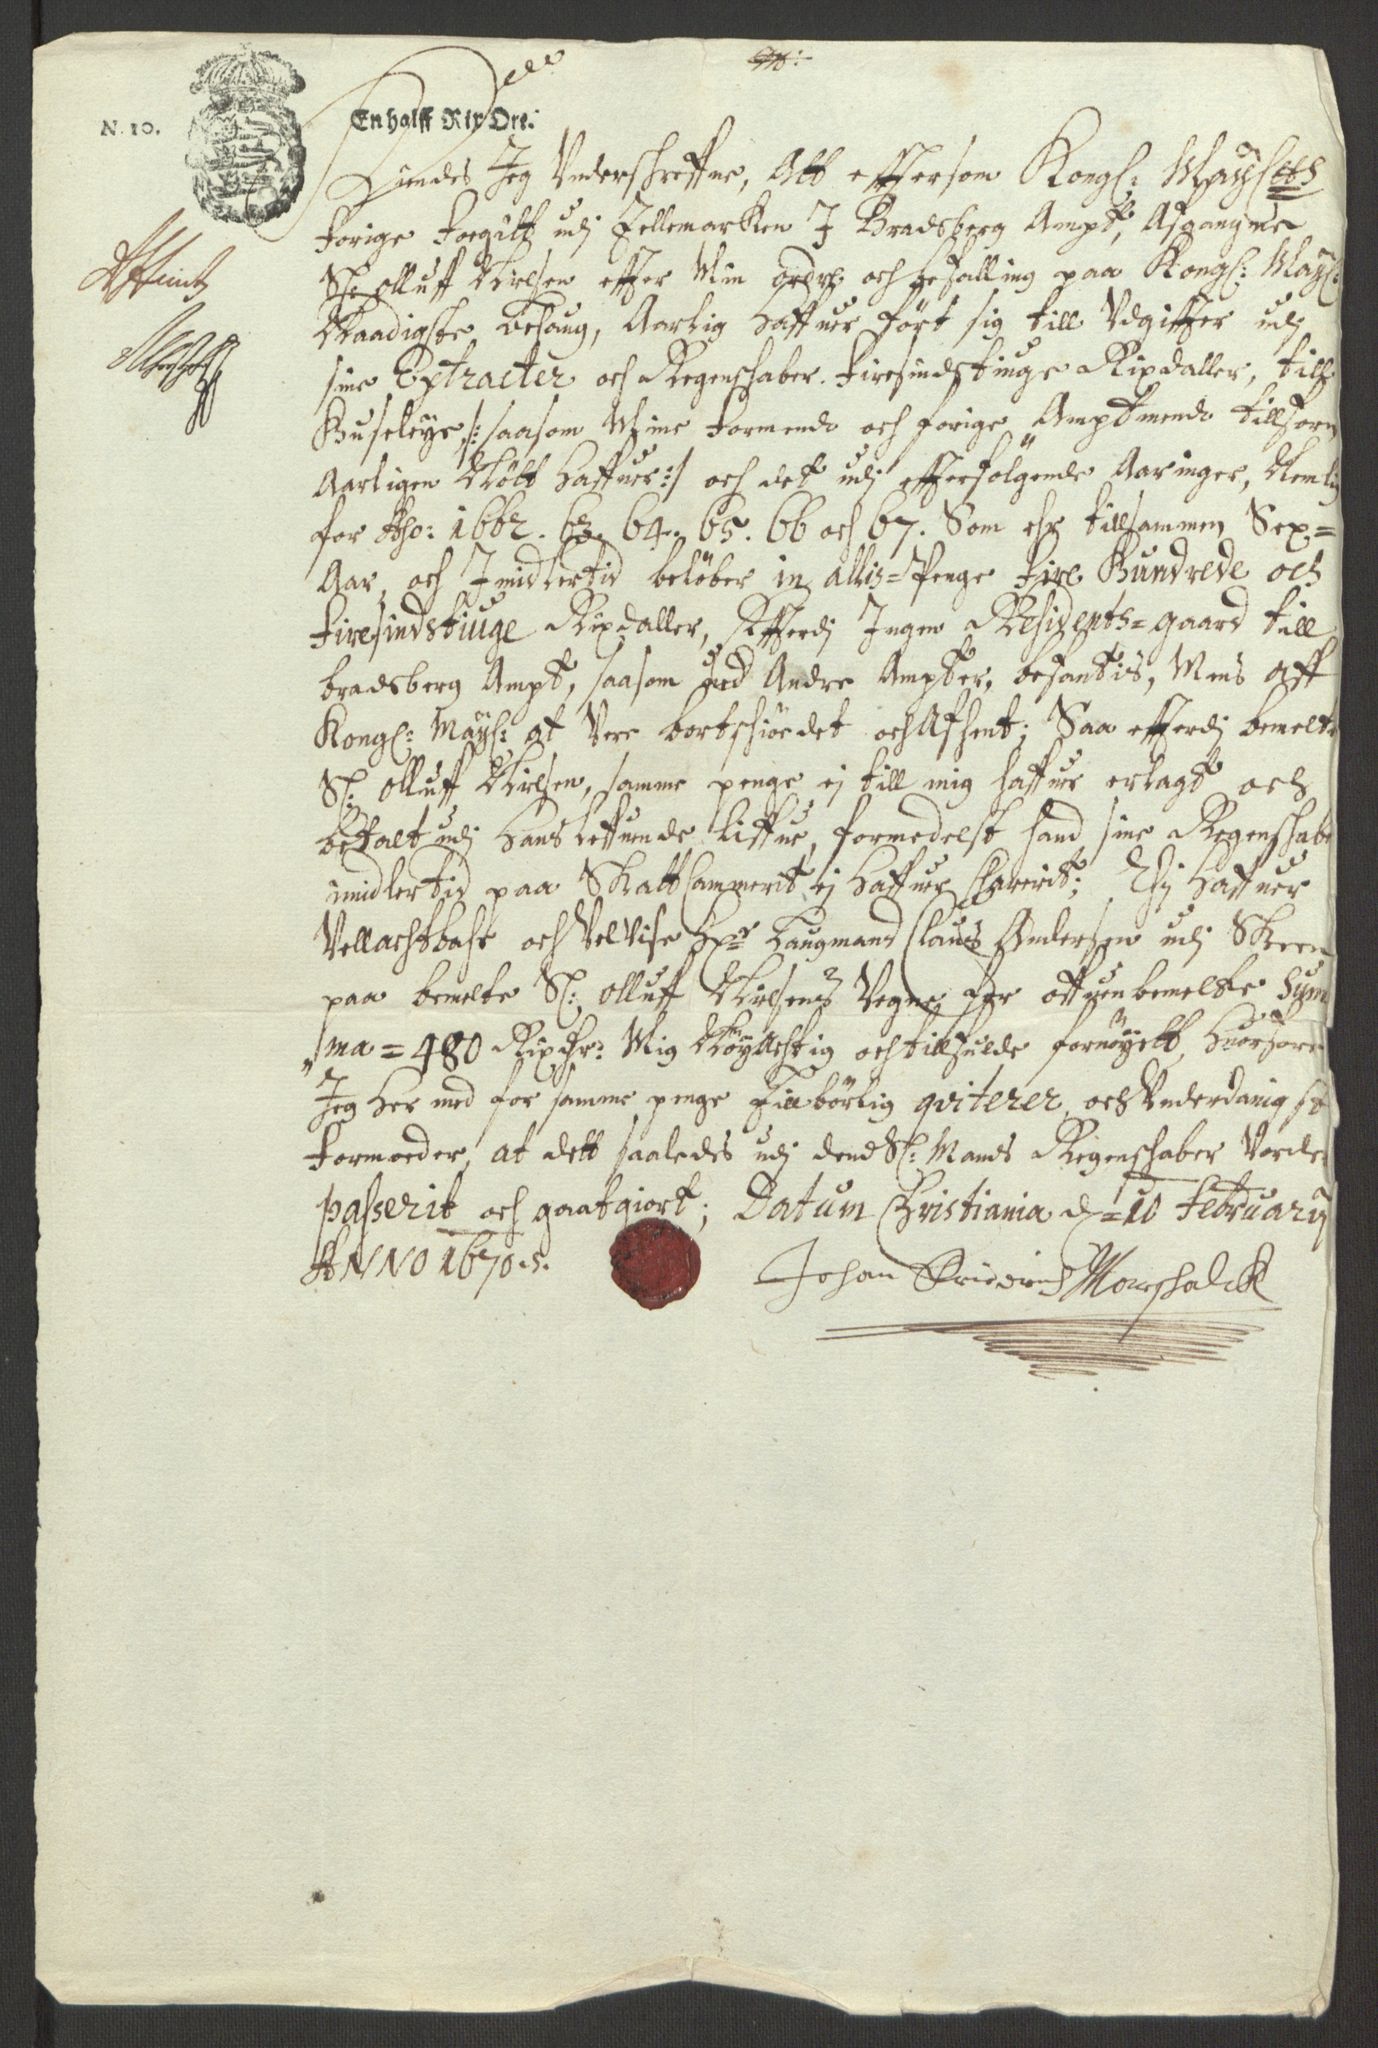 N. 10.
En halff Rix Ort.
Kiendes Jeg Underschreffne, Att effttersom Kongl: Mayests
forige foegitt udj Tellemarken I Bradsberg Ampt, Afgangne
Sl: Olluff Nielsen effter Min ordre och befalling paa Kongl: Mayt:
Naadigste behaug, Aarlig haffuer ført sig till Udgiffter udj
sine Extracter och Regenschaber. Firesindstiuge Rixdaller, till
Huusleye /: saasom Mine formend och forige Amptmend tillforn
Aarligen Nøtt haffuer :/ och det udj effterfølgende Aaringer, Nemlig
for Aho: 1662. 63. 64. 65. 66 och 67. Som ehr tillsammen Sex=
Aar, och Imidlertid beløber in alles = Penge Fire Hundrede och
firesindstiuge Rixdaller, Efftterdj Ingen Residents = gaard till
bradsberg Ampt, saasom ved Andre Ampter, befantis, Mens aff
Kongl: Mayt: at Vere bortschiødet och Afhent; Saa effterdj bemelte
Sl: Olluff Nielsen, samme penge ej till mig haffuer erlagt och
betalt udj Hans leffuende liffue, formedelst hand sine Regenschaber
imidlertid paa Skatt Cammerit ej haffuer Clarerit; Thj haffuer
Vellachtbahr och Velvise Hr Laugmand Claus Andersen udj Skeen
paa bemelte Sl: Olluff Nielsens Vegne for offuenbemelte Sum
"ma = 480 Rixdr: Mig Nøyachtig och tillfulde fornøyett, Huorfore
Jeg her med for samme penge Tillbørlig qviterer, och Underdanigst
formoeder, at dett saaledis udj dend Sl: Mands Regenschaber Vorder
passerit och gaatgiort; Datum Christiania d = 10 Februarij
ANNO 1670.
Johan Friderich Marschalck